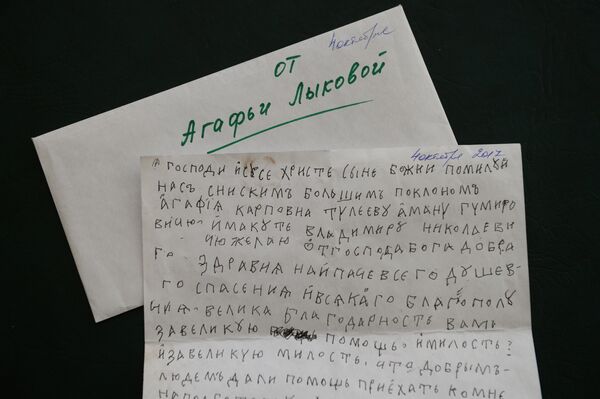 4 октября
ОТ
Агафьи Лыковой
4 октября 2017
ГОСПОДИ ІСУСЕ ХРИСТЕ СЫНЕ БОЖИИ ПОМИЛУЙ
НАСЪ СНИСКИМЪ БОЛЬШИМЪ ПОКЛОНОМЪ
АГАФІѦ КАРПОВНА ТУЛЕЕВУ АМАНУ ГУМИРО
ВИЧЮ ИМАКУТЕ ВЛАДИМИРУ НИКОЛАЕВИ
ЧЮ ЖЕЛАЮ ѾГОСПОДА БОГА ДОБРА
ГО ЗДРАВИꙖ НАЙПАЧЕ ВСЕГО ДУШЕВ
ГО СПАСЕНИѦ ИВСѦКАГО БЛАГОПОЛУ
ЧИѦ ВЕЛИКА БЛАГОДАРНОСТЬ ВАМЪ
ЗАВЕЛИКУЮ ПОМОЩЬ ИМИЛОСТЬ
ИЗАВЕЛИКУЮ МИЛОСТЬ, ЧТО ДОБРЫМЪ
ЛЮДЕМЪ ДАЛИ ПОМОЩЬ ПРИЕХАТЬ КОМНЕ